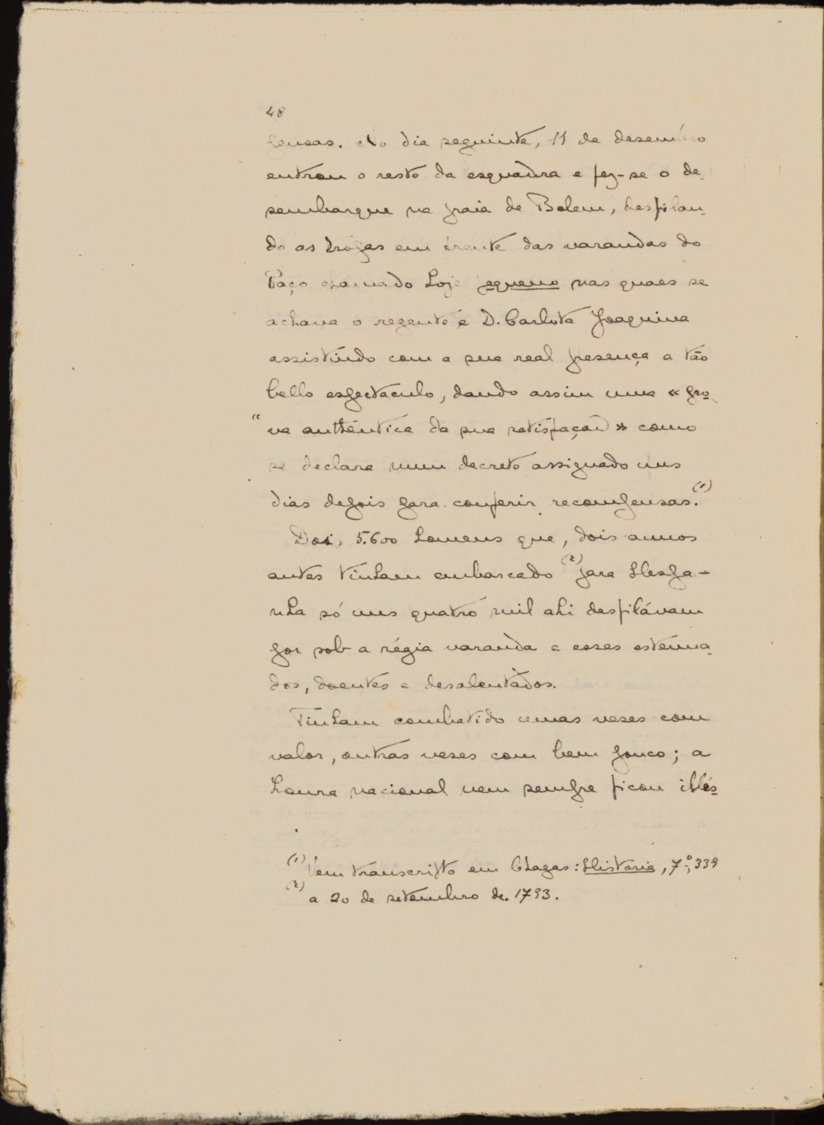 48
pensas. No dia seguinte, 11 de desembro
entrou o resto da esquadra e fez-se o de-
sembarque na praia de Belem, desfilan-
do as tropas em frente das varandas do
Paço chamado Loja pequeno nas quaes se
achava o regente e D. Carlota Joaquina
assistindo com a sua real presença a tão
bello espectaculo, dando assim uma « pro-
" va authéntica da sua satisfação » como
se declara num decreto assignado uns
dias depois para conferir recompensas. (1)
Dos 5.600 homens que, dois annos
antes tinham embarcado (2) para Hespa-
nha só uns quatro mil ahi desfilávam
por sob a régia varanda e esses estenua-
dos, doentes e desalentados.
Tinham combatido umas veses com
valor, outras veses com bem pouco; a
honra nacional nem sempre ficou illés-
(1) Vem transcripto em Chagas: Historia, 7.º, 339
(2) a 20 de setembro de 1793.